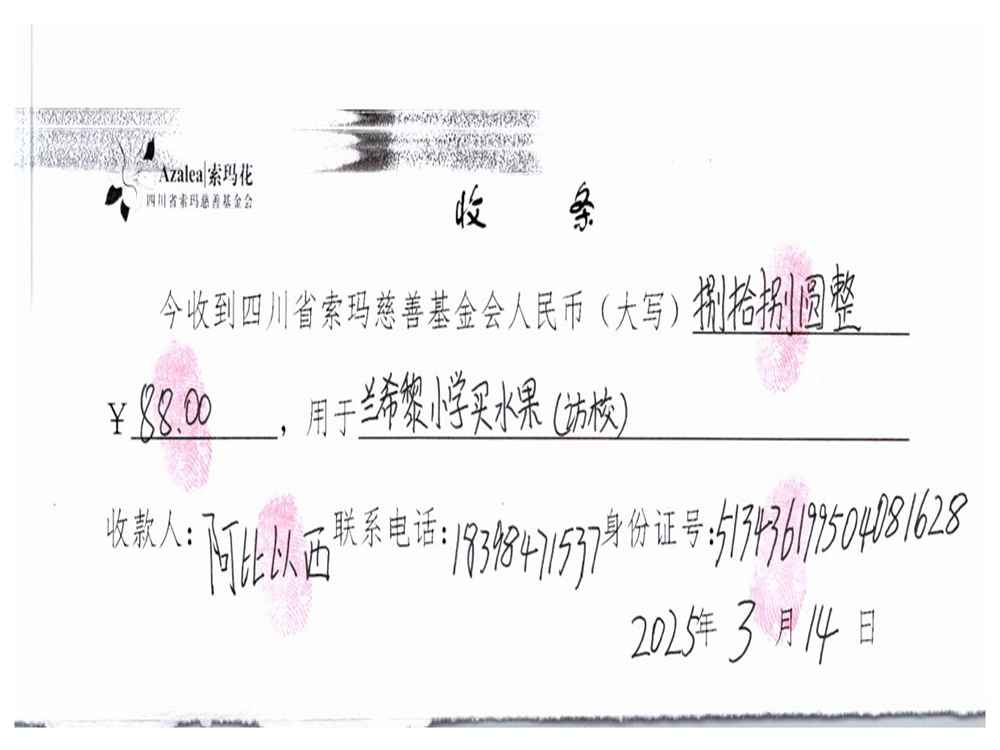 Azalea|索玛花
四川省索玛慈善基金会
收 条
今收到四川省索玛慈善基金会人民币（大写）捌拾捌圆整
￥88.00，用于兰希黎小学买水果（访校）
收款人：阿比以西 联系电话：18398471537 身份证号：513436199504081628
2025年3月14日